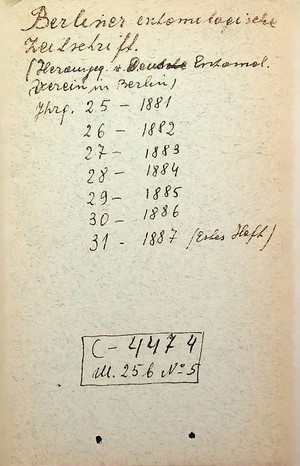 Berliner entomologische
Zeitschrift.
(Herausgeg. v. Deutsche Entomol.
Verein in Berlin)
Jhrg. 25 – 1881
26 – 1882
27 – 1883
28 – 1884
29 – 1885
30 – 1886
31 – 1887 (Erstes Heft)
C – 4474
Ш. 256 № 5